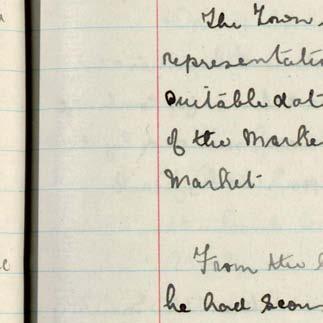 The Town
representatio
suitable dat
of the Marke
Market.
From the
he had secur